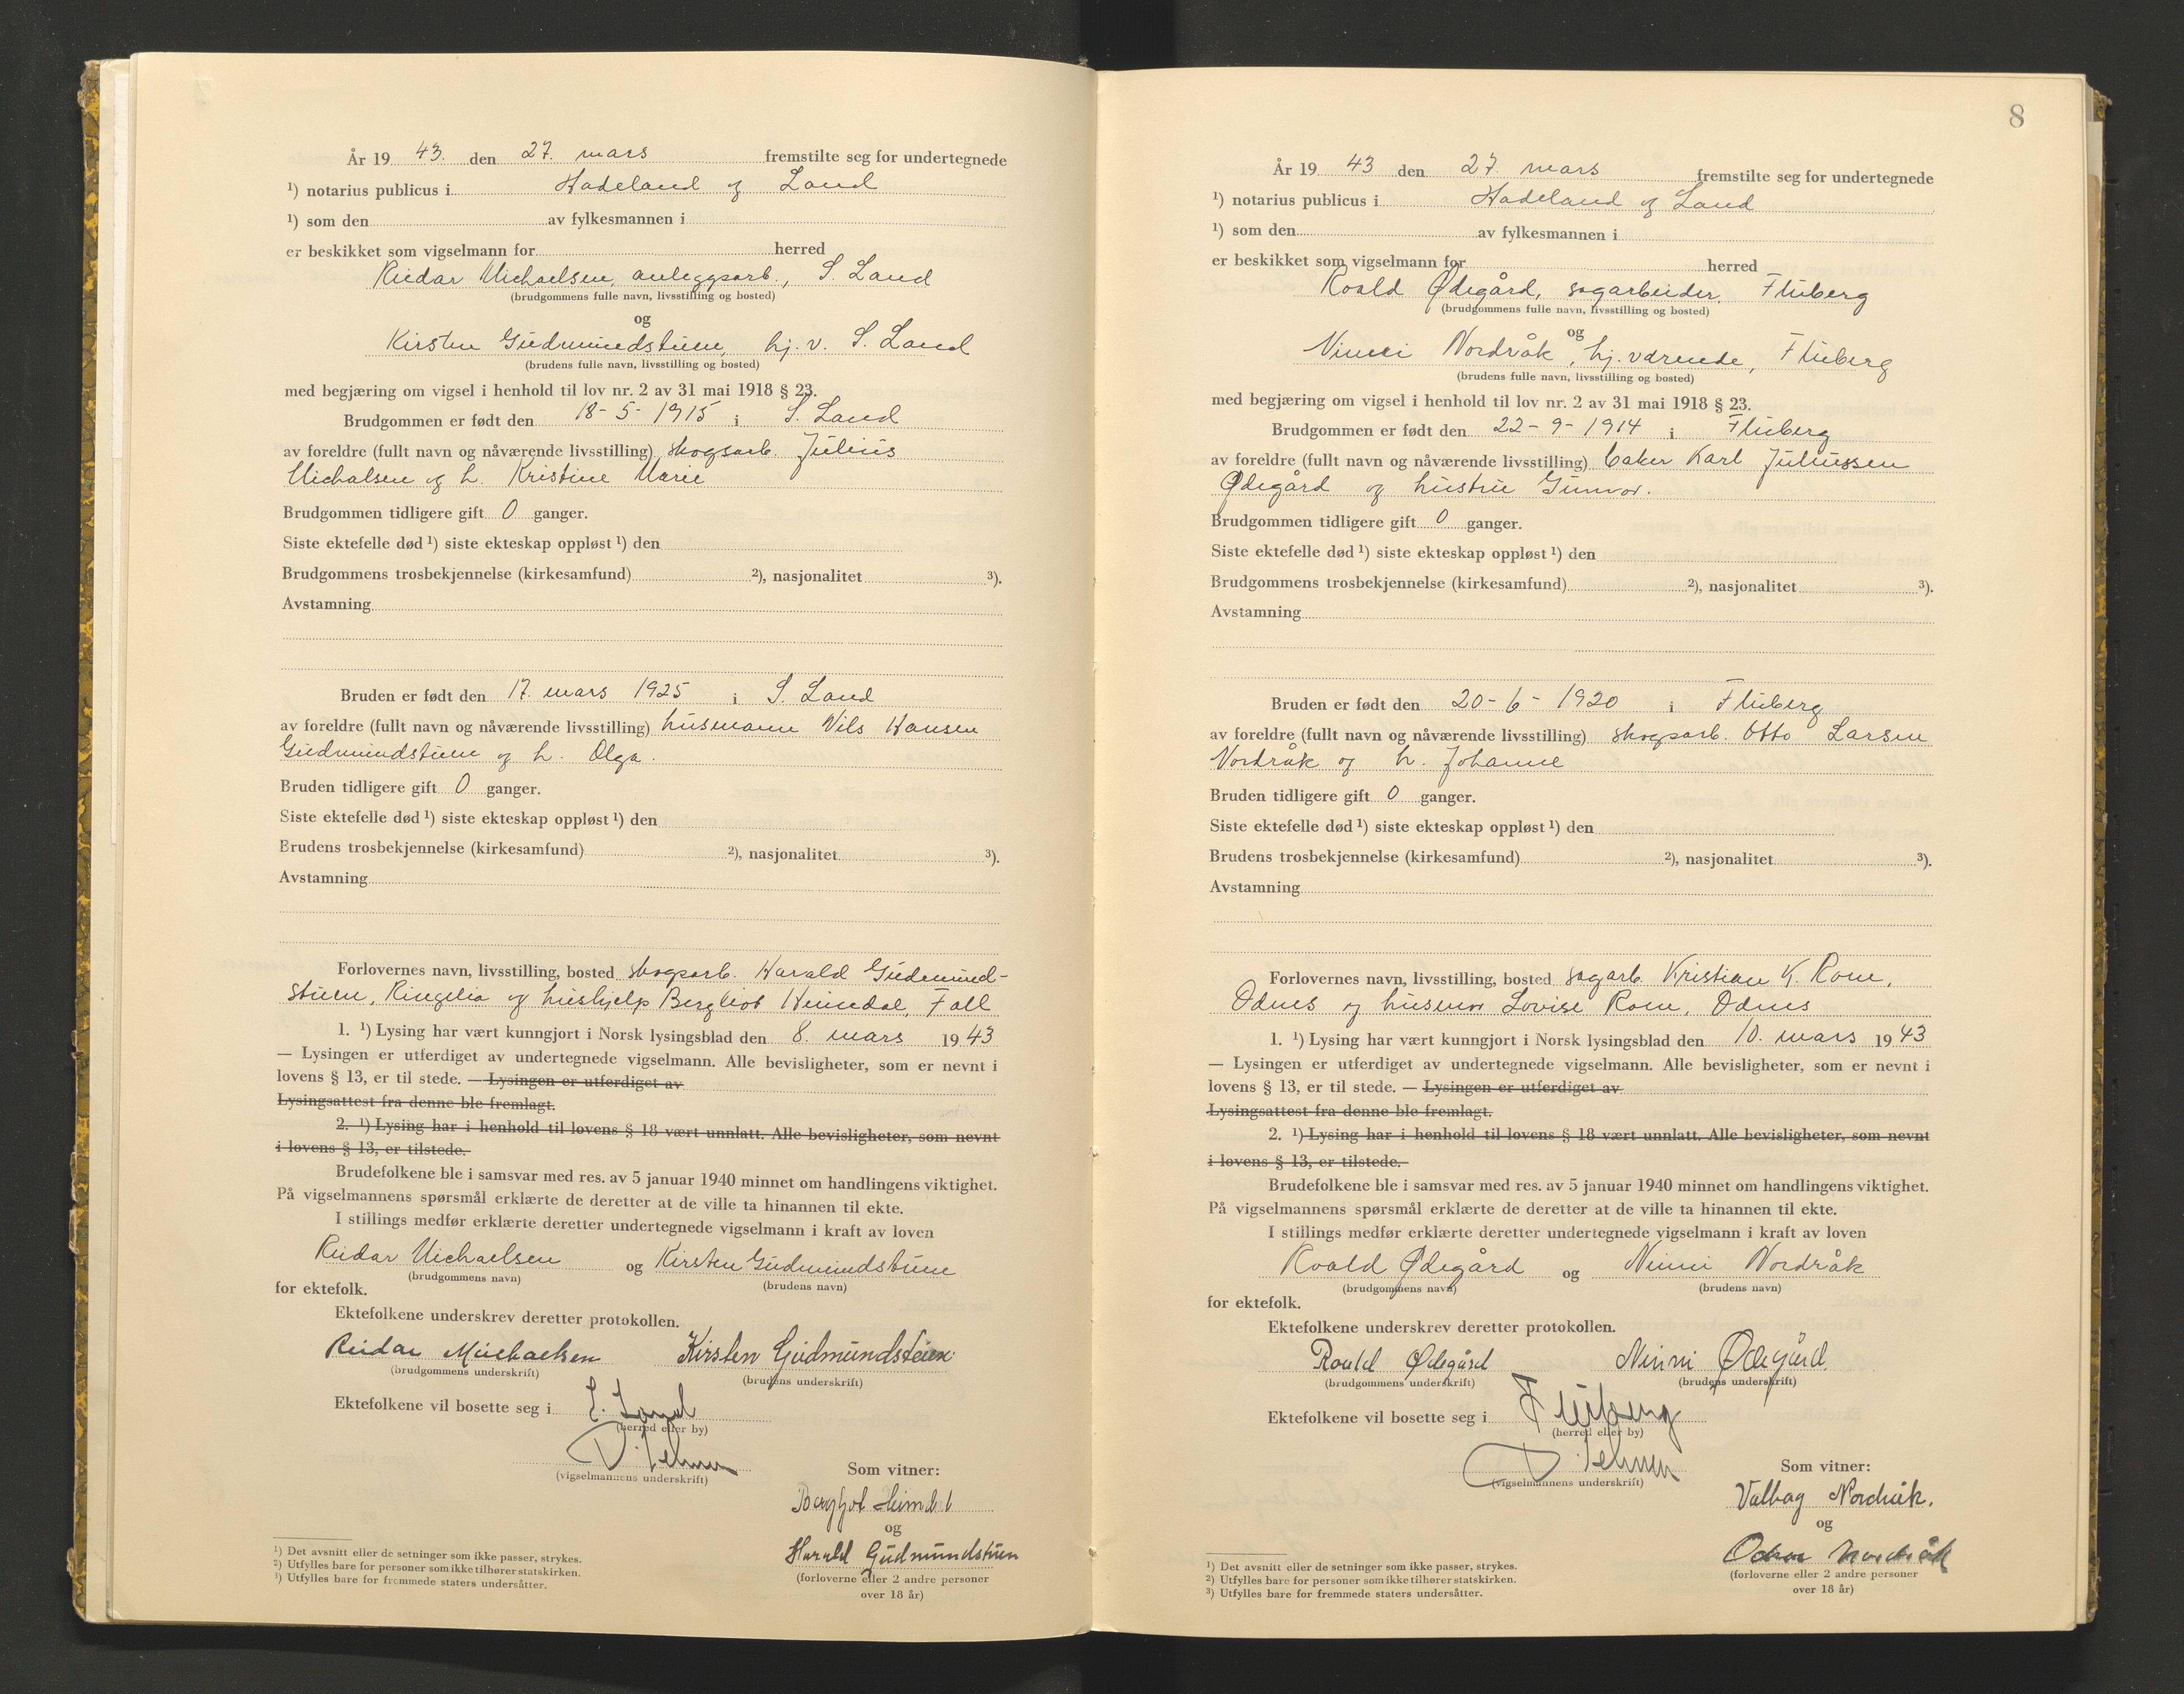 År 19 43. den 27. mars fremstilte seg for undertegnede
¹) notarius publicus i Hadeland og Land
¹) som den av fylkesmannen i
er beskikket som vigselmann for herred
Reidar Michaelsen, anleggsarb., S. Land
(brudgommens fulle navn, livsstilling og bosted)
og
Kirsten Gudmundstuen, hj. v. S. Land
(brudens fulle navn, livsstilling og bosted)
med begjæring om vigsel i henhold til lov nr. 2 av 31 mai 1918 § 23.
Brudgommen er født den 18-5-1915 i S. Land
av foreldre (fullt navn og nåværende livsstilling) skogsarb. Julius
Michalsen og h. Kristine Marie
Brudgommen tidligere gift 0 ganger.
Siste ektefelle død ¹) siste ekteskap oppløst ¹) den
Brudgommens trosbekjennelse (kirkesamfund) ²), nasjonalitet ³).
Avstamning
Bruden er født den 17. mars 1925 i S. Land
av foreldre (fullt navn og nåværende livsstilling) husmann Nils Hansen
Gudmundstuen og h. Olga.
Bruden tidligere gift 0 ganger.
Siste ektefelle død ¹) siste ekteskap oppløst ¹) den
Brudens trosbekjennelse (kirkesamfund) ²), nasjonalitet ³).
Avstamning
Forlovernes navn, livsstilling, bosted skogsarb. Harald Gudmund-
stuen, Ringelia og hushjelp Bergliot Heimdal, Fall
1. ¹) Lysing har vært kunngjort i Norsk lysingsblad den 8. mars 1943
— Lysingen er utferdiget av undertegnede vigselmann. Alle bevisligheter, som er nevnt i
lovens § 13, er til stede. — Lysingen er utferdiget av
Lysingsattest fra denne ble fremlagt.
2. ¹) Lysing har i henhold til lovens § 18 vært unnlatt. Alle bevisligheter, som nevnt
i lovens § 13, er tilstede.
Brudefolkene ble i samsvar med res. av 5 januar 1940 minnet om handlingens viktighet.
På vigselmannens spørsmål erklærte de deretter at de ville ta hinannen til ekte.
I stillings medfør erklærte deretter undertegnede vigselmann i kraft av loven
Reidar Michaelsen og Kirsten Gudmundstuen
(brudgommens navn) (brudens navn)
for ektefolk.
Ektefolkene underskrev deretter protokollen.
Reidar Michaelsen Kirsten Gudmundstuen
(brudgommens underskrift) (brudens underskrift)
Ektefolkene vil bosette seg i S. Land
(herred eller by)
(vigselmannens underskrift)
Som vitner:
Bergljot Heimdal
og
Harald Gudmundstuen
(forloverne eller 2 andre personer
over 18 år)
¹) Det avsnitt eller de setninger som ikke passer, strykes.
²) Utfylles bare for personer som ikke tilhører statskirken.
³) Utfylles bare for fremmede staters undersåtter.
8
År 19 43 den 27 mars fremstilte seg for undertegnede
¹) notarius publicus i Hadeland og Land
¹) som den av fylkesmannen i
er beskikket som vigselmann for herred
Roald Ødegård, sagarbeider, Fluberg
(brudgommens fulle navn, livsstilling og bosted)
og
Ninni Nordråk, hj. værende, Fluberg
(brudens fulle navn, livsstilling og bosted)
med begjæring om vigsel i henhold til lov nr. 2 av 31 mai 1918 § 23.
Brudgommen er født den 22-9-1914 i Fluberg
av foreldre (fullt navn og nåværende livsstilling) baker Karl Juliussen
Ødegård og hustru Gunvor.
Brudgommen tidligere gift 0 ganger.
Siste ektefelle død ¹) siste ekteskap oppløst ¹) den
Brudgommens trosbekjennelse (kirkesamfund) ²), nasjonalitet ³).
Avstamning
Bruden er født den 20-6-1920 i Fluberg
av foreldre (fullt navn og nåværende livsstilling) skogsarb. Otto Larsen
Nordråk og h. Johanne
Bruden tidligere gift 0 ganger.
Siste ektefelle død ¹) siste ekteskap oppløst ¹) den
Brudens trosbekjennelse (kirkesamfund) ²), nasjonalitet ³).
Avstamning
Forlovernes navn, livsstilling, bosted sagarb. Kristian K. Rom,
Odnes og husmor Lovise Rom, Odnes
1. ¹) Lysing har vært kunngjort i Norsk lysingsblad den 10. mars 1943
— Lysingen er utferdiget av undertegnede vigselmann. Alle bevisligheter, som er nevnt i
lovens § 13, er til stede. — Lysingen er utferdiget av
Lysingsattest fra denne ble fremlagt.
2. ¹) Lysing har i henhold til lovens § 18 vært unnlatt. Alle bevisligheter, som nevnt
i lovens § 13, er tilstede.
Brudefolkene ble i samsvar med res. av 5 januar 1940 minnet om handlingens viktighet.
På vigselmannens spørsmål erklærte de deretter at de ville ta hinannen til ekte.
I stillings medfør erklærte deretter undertegnede vigselmann i kraft av loven
Roald Ødegård og Ninni Nordråk
(brudgommens navn) (brudens navn)
for ektefolk.
Ektefolkene underskrev deretter protokollen.
Roald Ødegård Ninni Ødegård
(brudgommens underskrift) (brudens underskrift)
Ektefolkene vil bosette seg i Fluberg
(herred eller by)
(vigselmannens underskrift)
Som vitner:
Valbag Nordråk.
og
Nordråk
(forloverne eller 2 andre personer
over 18 år)
¹) Det avsnitt eller de setninger som ikke passer, strykes.
²) Utfylles bare for personer som ikke tilhører statskirken.
³) Utfylles bare for fremmede staters undersåtter.